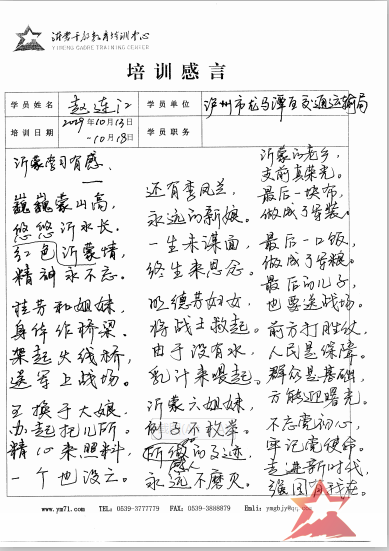 沂蒙干部教育培训中心
YIMENG CADRE TRAINING CENTER
培训感言
学员姓名 赵连江 学员单位 泸州市龙马潭区交通运输局
培训日期 2021年10月13日-10月18日 学员职务
沂蒙学习有感
一
巍巍蒙山高,
悠悠沂水长。
红色沂蒙情,
精神永不忘。
桂芳和姐妹
身体作桥梁。
架起火线桥,
送军上战场。
王换于大娘,
办起托儿所。
精心来照料,
一个也没亡。
还有李凤兰,
永远的新娘。
一生未谋面,
终生来思念。
明德芳妇女,
将战士救起。
由于没有水,
乳汁来喂起。
沂蒙六姐妹,
例子不枚举。
所做的事迹,
感人
永远不磨灭。
沂蒙的老乡,
支前真荣光。
最后一块布,
做成了军装。
最后一口饭,
做成了军粮。
最后的儿子,
也要送战场。
前方打胜仗,
人民是保障。
群众是基础,
方能迎曙光。
不忘党初心,
牢记党使命。
走进新时代,
强国有我在。
www.ym71.com TEL: 0539-3777779 FAX: 0539-3888879 Emli: ymgbjy@q